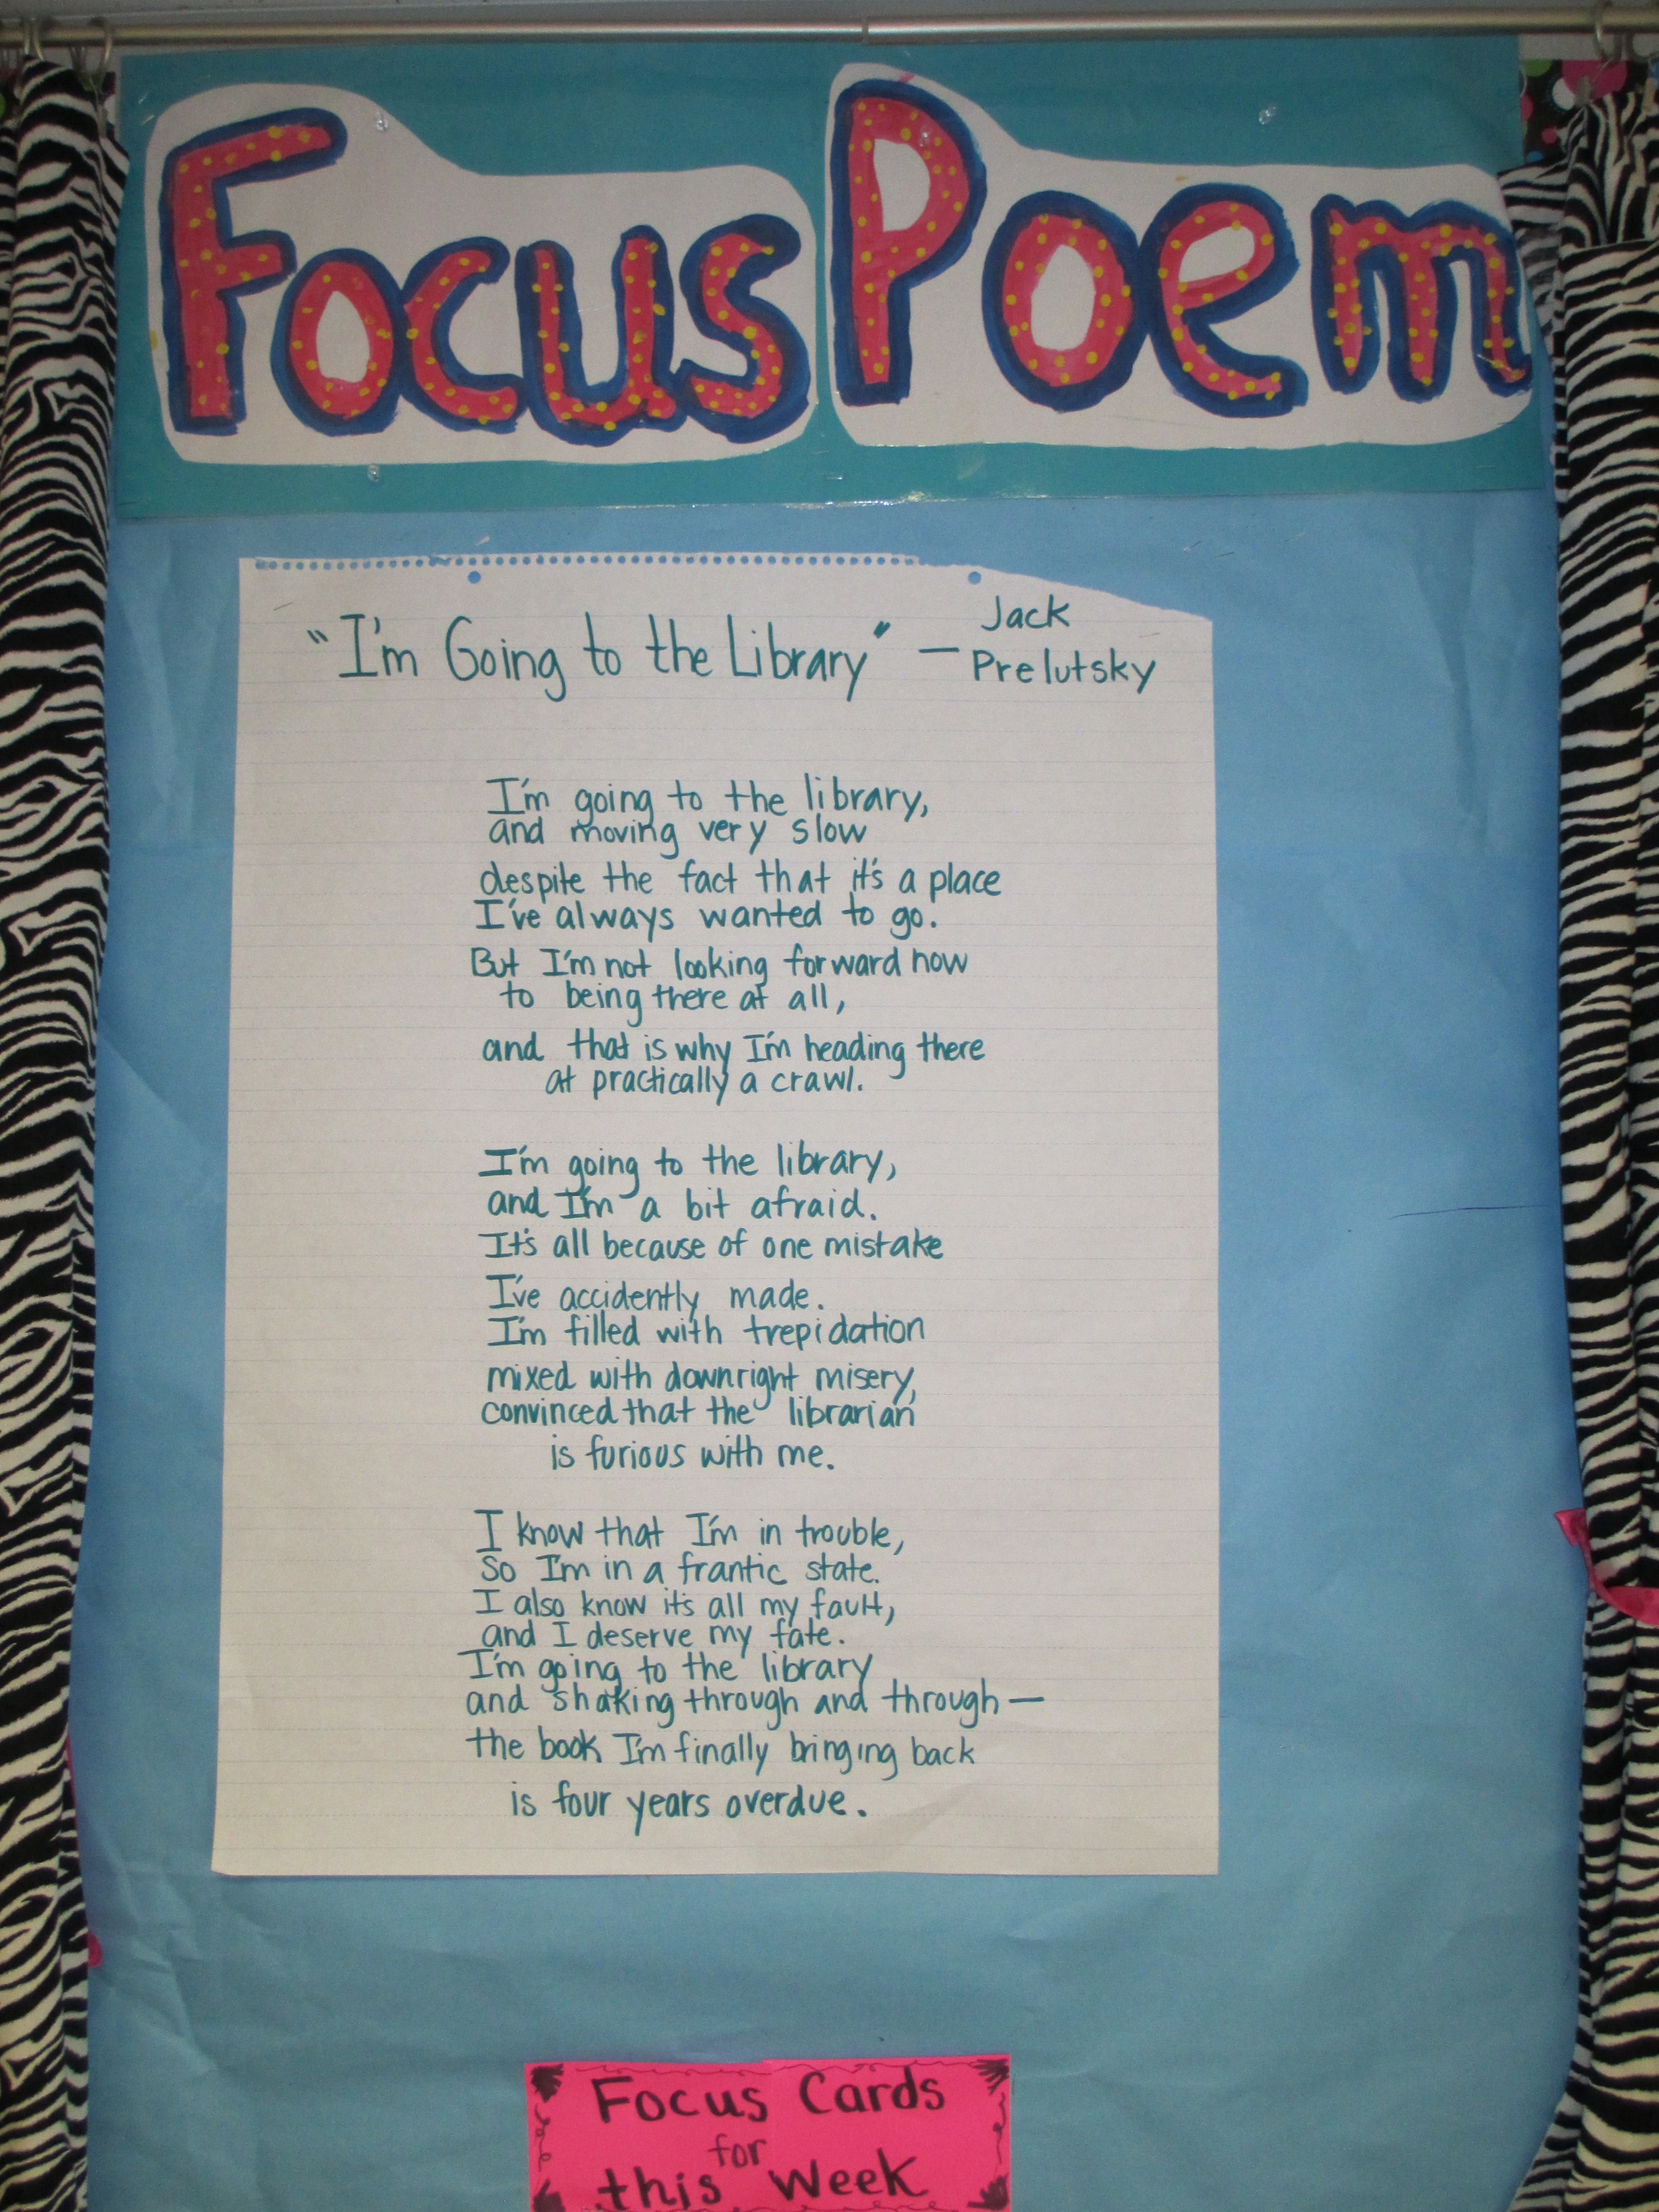 Focus Poem
"I'm Going to the Library" — Jack Prelutsky
I'm going to the library,
and moving very slow
despite the fact that it's a place
I've always wanted to go.
But I'm not looking forward now
to being there at all,
and that is why I'm heading there
at practically a crawl.
I'm going to the library,
and I'm a bit afraid.
It's all because of one mistake
I've accidently made.
I'm filled with trepidation
mixed with downright misery,
convinced that the librarian
is furious with me.
I know that I'm in trouble,
So I'm in a frantic state.
I also know it's all my fault,
and I deserve my fate.
I'm going to the library
and shaking through and through—
the book I'm finally bringing back
is four years overdue.
Focus Cards
for
this Week